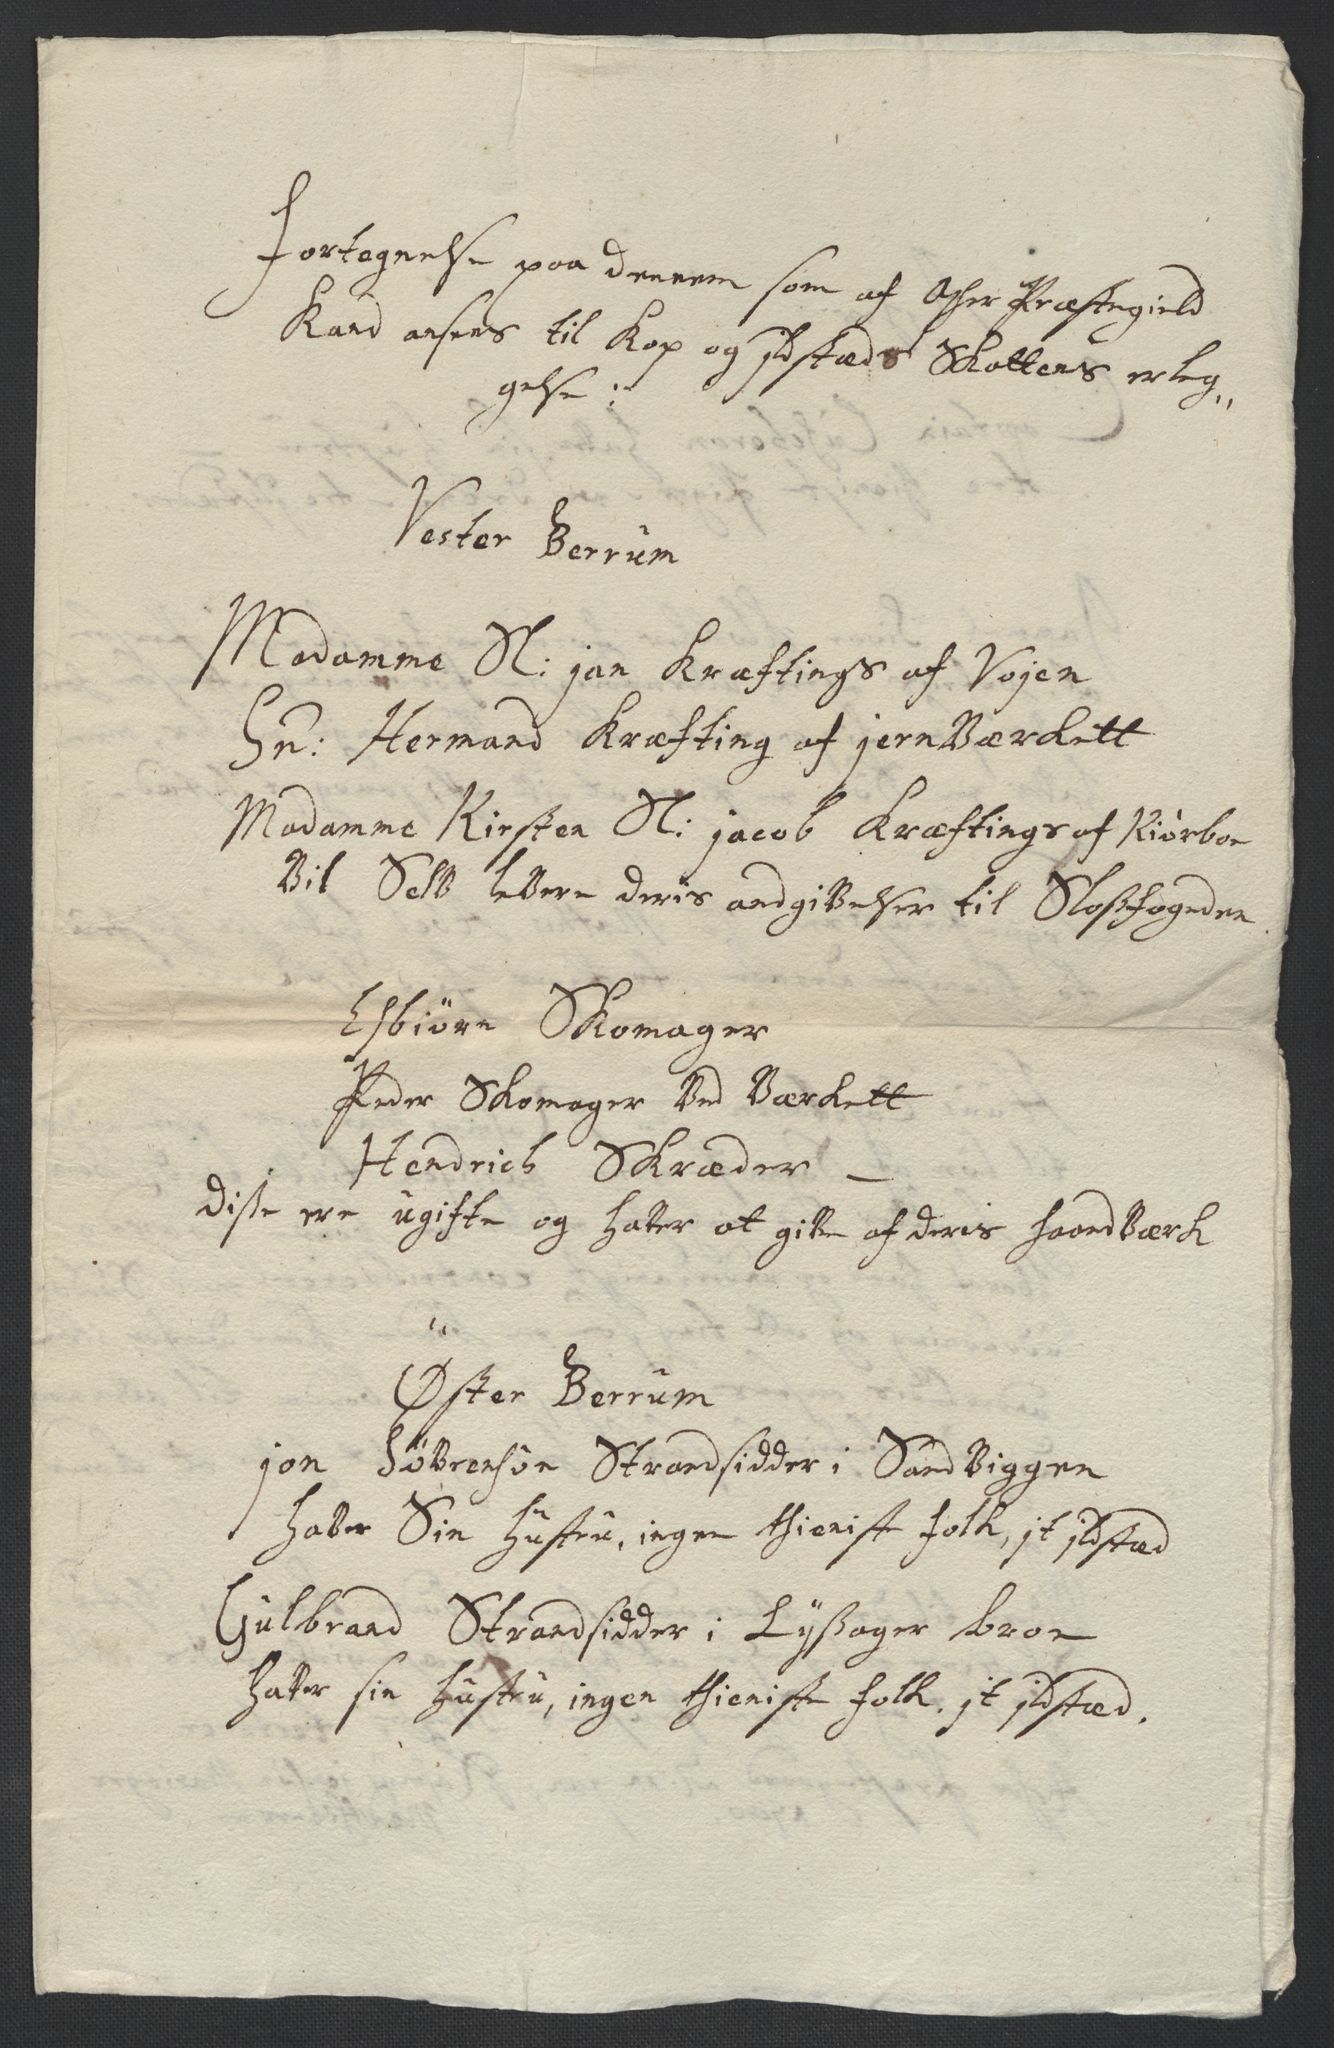 Fortegnelse paa dennem som af Asker Præstegield
Kand ansees til Kop og Jldstæds Skattens erleg„
gelse:
Vester Berrum
Madamme Sl: jan Kræftings af Vøjen
Hr: Hermand Kræfting af jernVærkett
Madamme Kirsten Sl: jacob Kræftings af Kiørboe
Vil Selv levere deris andgivelser til Sloßfogeden
Esbiørn Skomager
Peder Skomager Ved Værkett
Hendrich Skræder —
diße ere ugifte og haver at give af deris haandværk
Øster Berrum
jon Søvrensøn Strandsidder i Sandviggen
haver Sin hustru, ingen thieniste folk, jt jldstæd
Gulbrand Strandsidder i Lyßager broe
haver sin hustru, ingen thieniste folk. jt jldstæd.